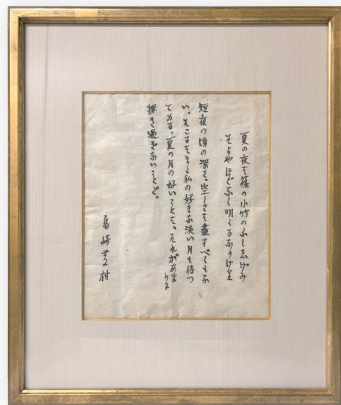 夏の夜は篠の小竹のふししげみ
そよやほどなく明くるなりけり
短夜の頃の深さ、空しさは盡すべくもな
い。そこにはまた私の好きな淡い月も待つ
てゐる。夏の月の好いことは、それがあまり
輝き過ぎないことだ。
島崎藤村